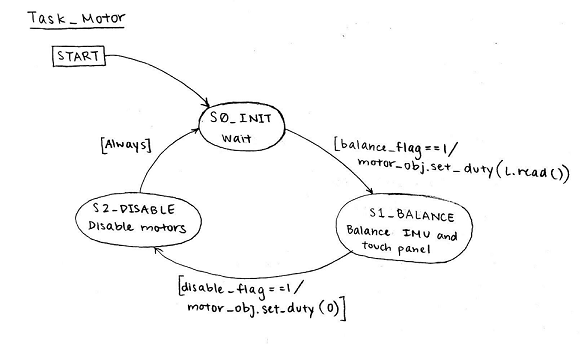 Task_Motor
START
SØ_INIT
Wait
[Always]
[balance_flag==1/
motor_obj.set_duty(L.read())
S2_DISABLE
Disable motors
S1_BALANCE
Balance IMU and
touch panel
[disable_flag==1/
motor_obj.set_duty(0)]